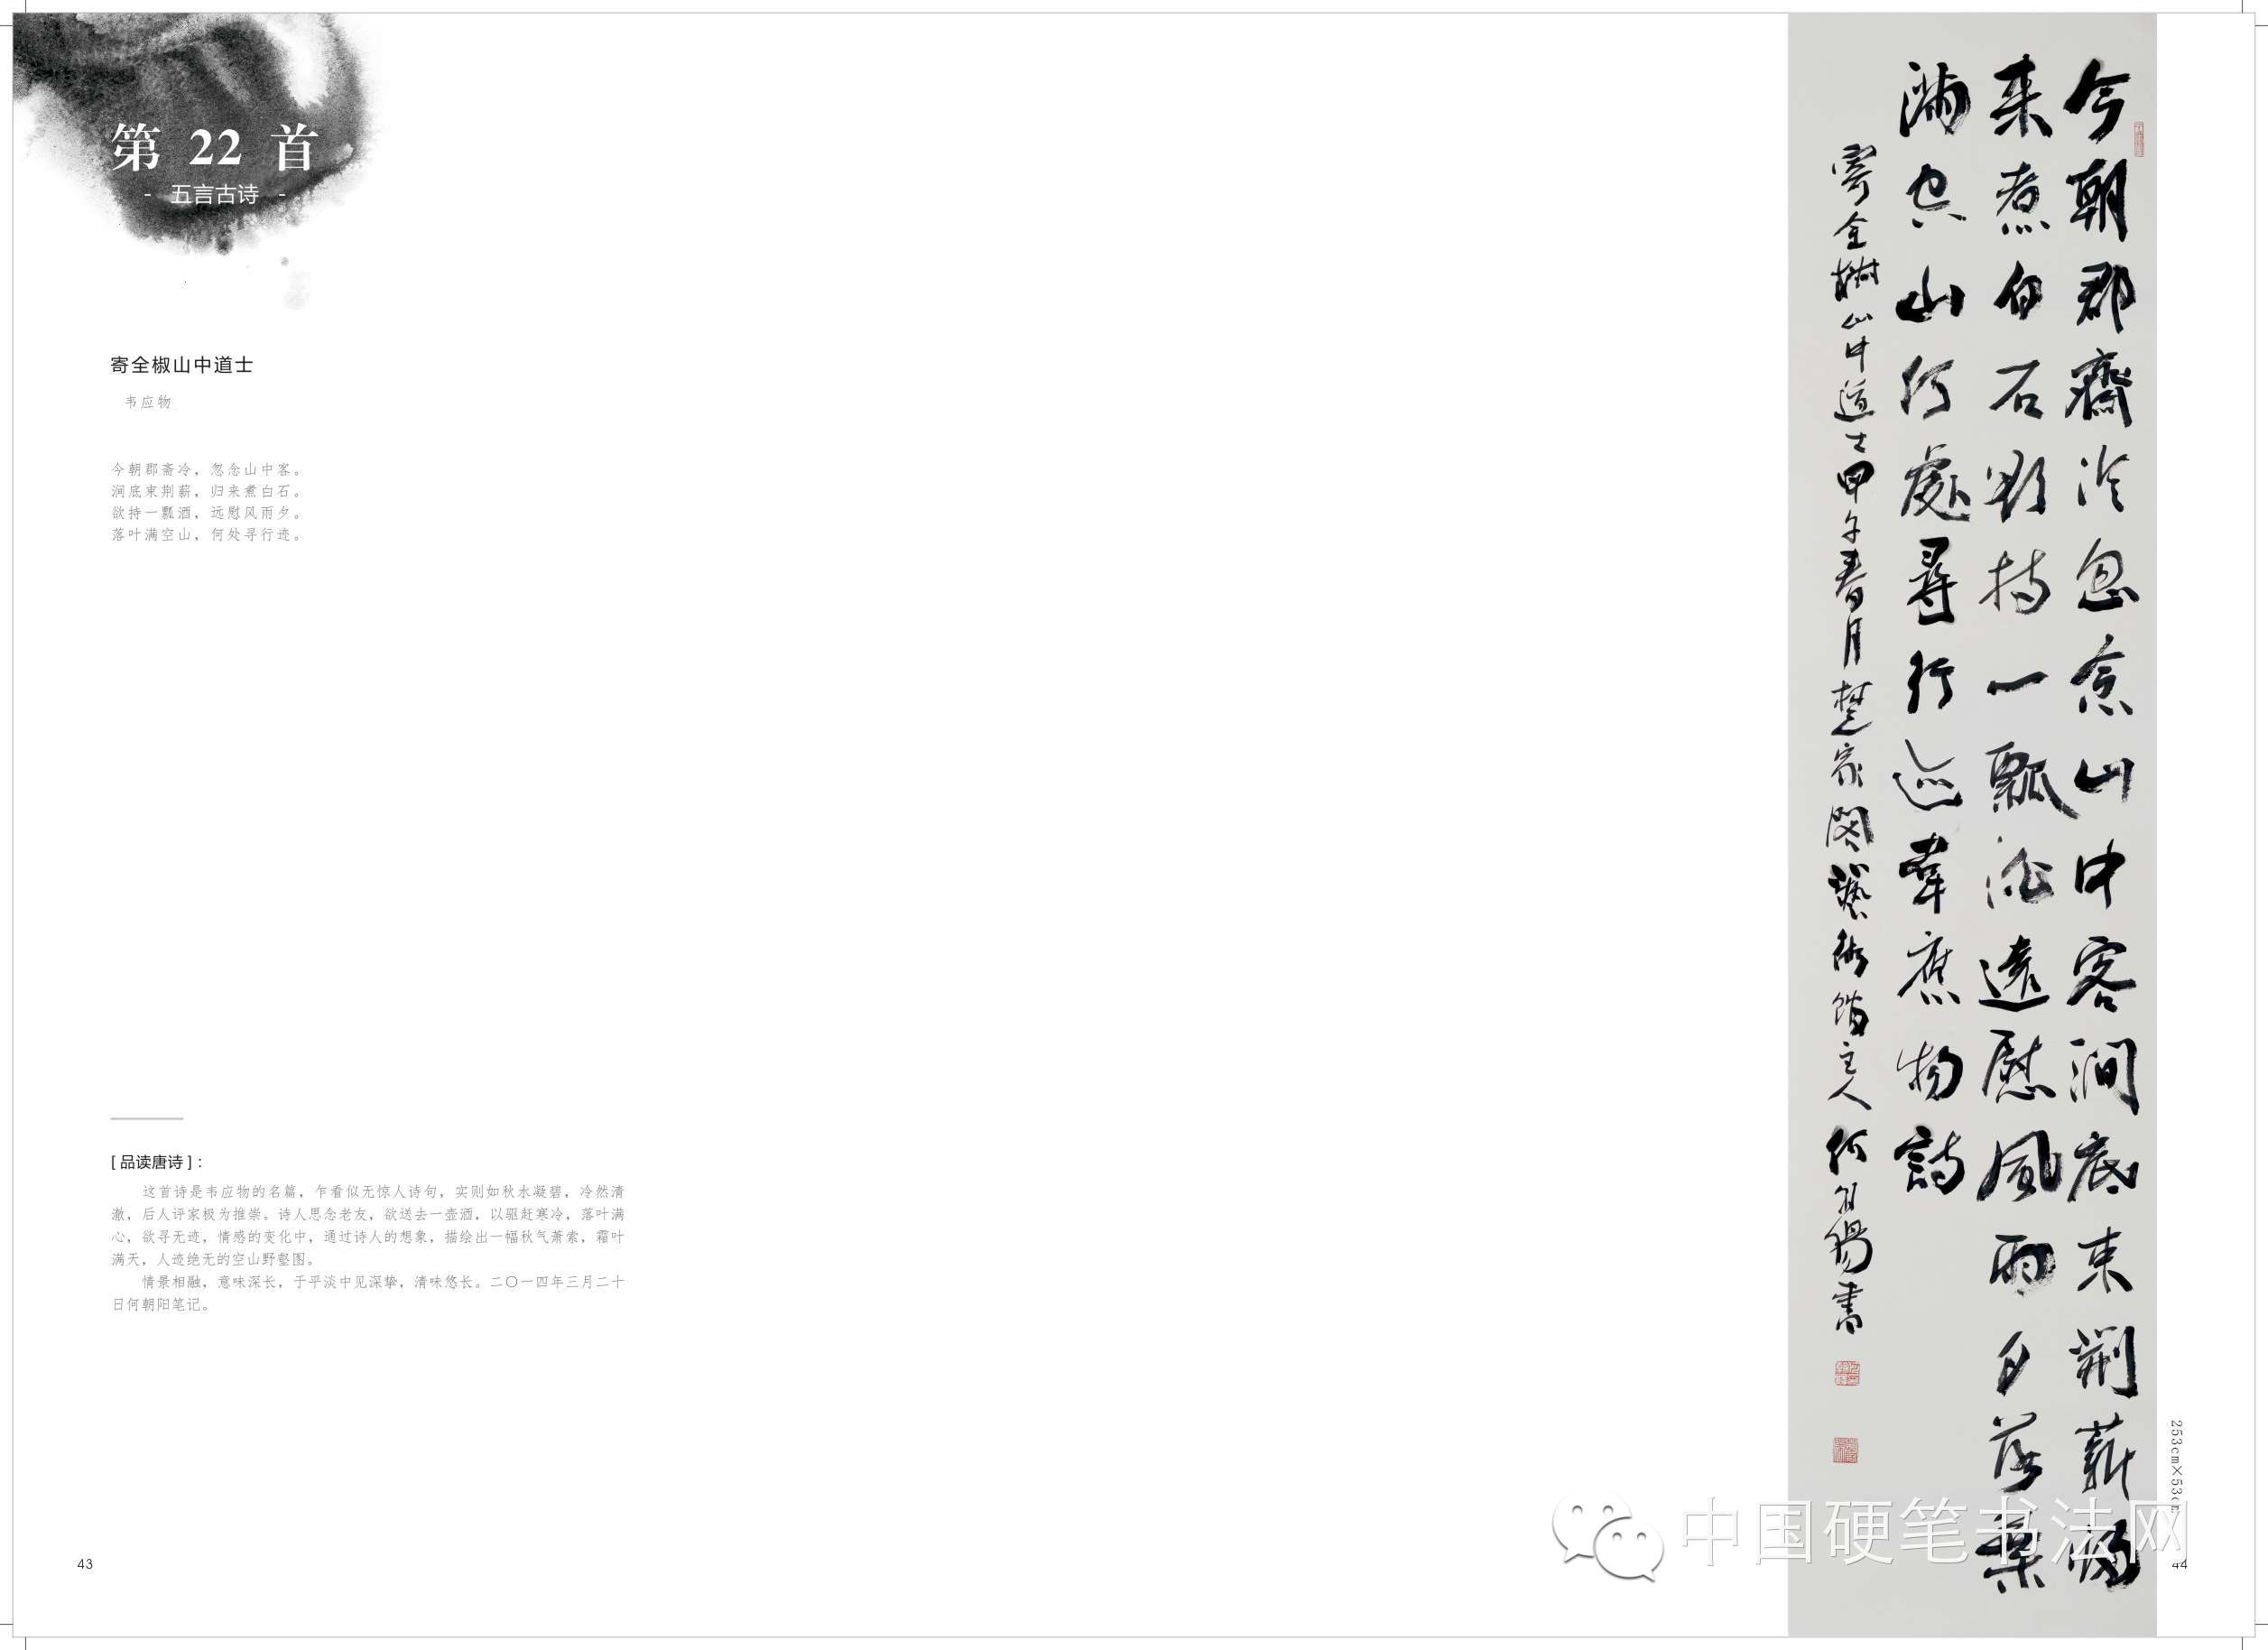 第 22 首
- 五言古诗 -
寄全椒山中道士
韦应物
今朝郡斋冷，忽念山中客。
涧底束荆薪，归来煮白石。
欲持一瓢酒，远慰风雨夕。
落叶满空山，何处寻行迹。
[ 品读唐诗 ]：
这首诗是韦应物的名篇，乍看似无惊人诗句，实则如秋水凝碧，冷然清
澈，后人评家极为推崇。诗人思念老友，欲送去一壶酒，以驱赶寒冷，落叶满
心，欲寻无迹，情感的变化中，通过诗人的想象，描绘出一幅秋气萧索，霜叶
满天，人迹绝无的空山野壑图。
情景相融，意味深长，于平淡中见深挚，清味悠长。二〇一四年三月二十
日何朝阳笔记。
43
今朝郡齋冷忽念山中客澗底束荆薪歸
来煮白石欲持一瓢酒遠慰風雨夕落葉
滿空山何處尋行迹韋應物詩
寄全椒山中道士甲午春月楚家閣藝術館主人何朝陽書
253cm×53cm
中国硬笔书法网
44